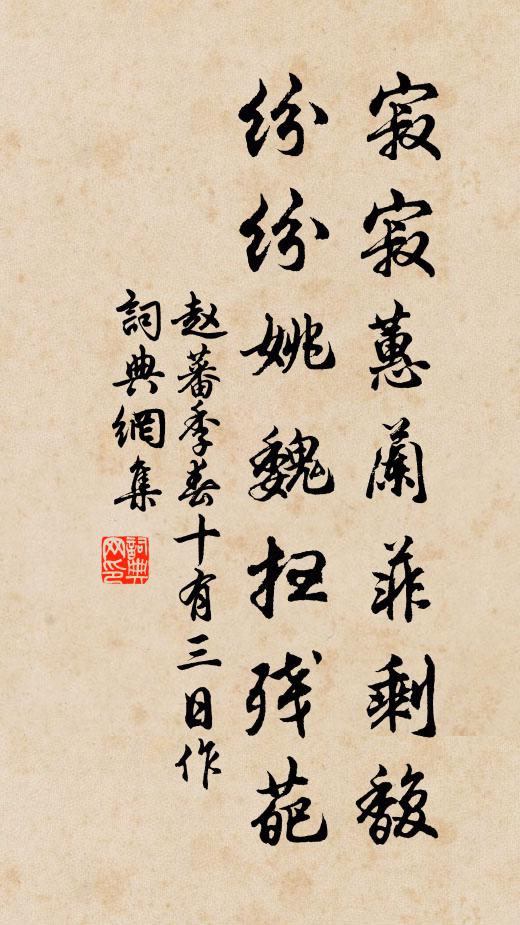 寂寂蕙蘭菲剩馥
纷纷姚魏残葩
赵蕃季春十有三日作
詞典網集
詞典网印